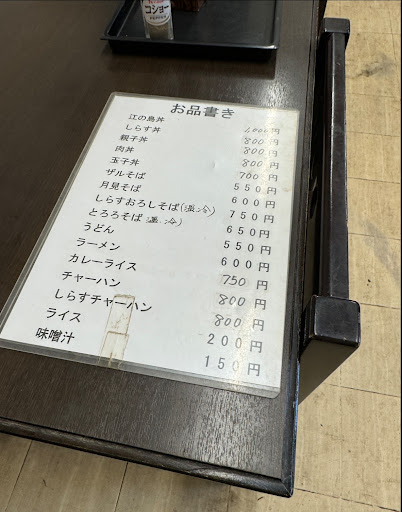 コショー
PEPPER
お品書き
江の島丼 1000円
しらす丼 800円
親子丼 800円
肉丼 800円
玉子丼 700円
ザルそば 550円
月見そば 600円
しらすおろしそば(温、冷) 750円
とろろそば(温、冷) 650円
うどん 550円
ラーメン 600円
カレーライス 750円
チャーハン 800円
しらすチャーハン 800円
ライス 200円
味噌汁 150円